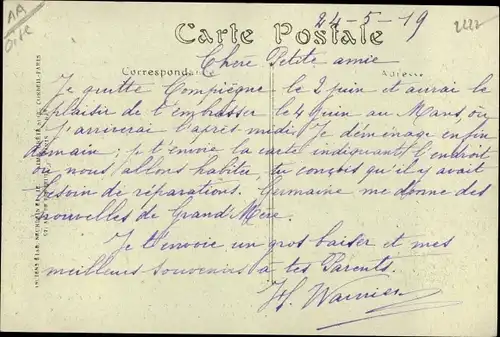 AA
Oise
24-5-19
2222
Carte Postale
Chère Petite amie
Correspondance
Adresse
Je quitte Compiègne le 2 juin et aurai le
plaisir de t'embrasser le 4 juin au Mans, où
j'arriverai l'après-midi. Je déménage enfin
demain; je t'envoie la carte indiquant l'endroit
où nous allons habiter, tu conçois qu'il y avait
besoin de réparations. Germaine me donne des
nouvelles de Grand'Mère.
Je t'envoie un gros baiser et mes
meilleurs souvenirs à tes Parents.